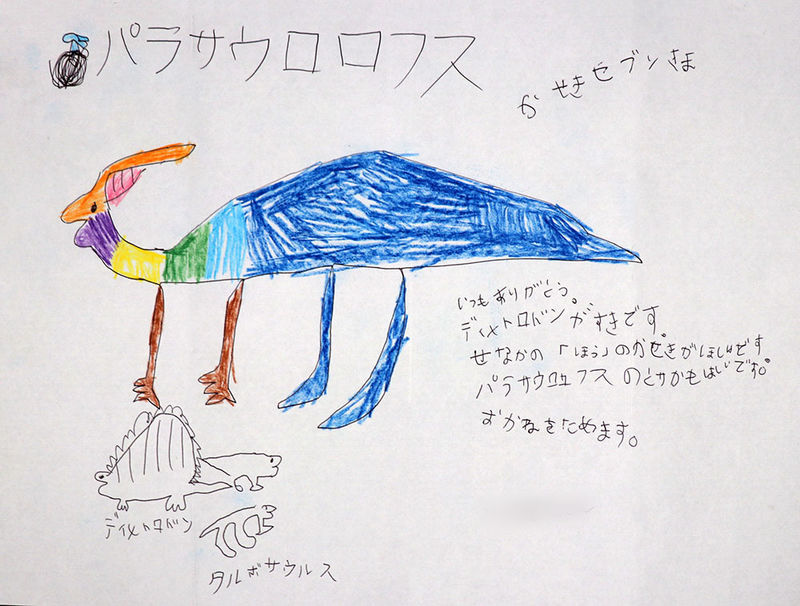 パラサウロロフス
かせきセブンさま
いつもありがとう。
ディメトロドンがすきです。
せなかの「ほう」のかせきがほしいです
パラサウロロフスのとさかもほしいです。
おかねをためます。
ディメトロドン
タルボサウルス